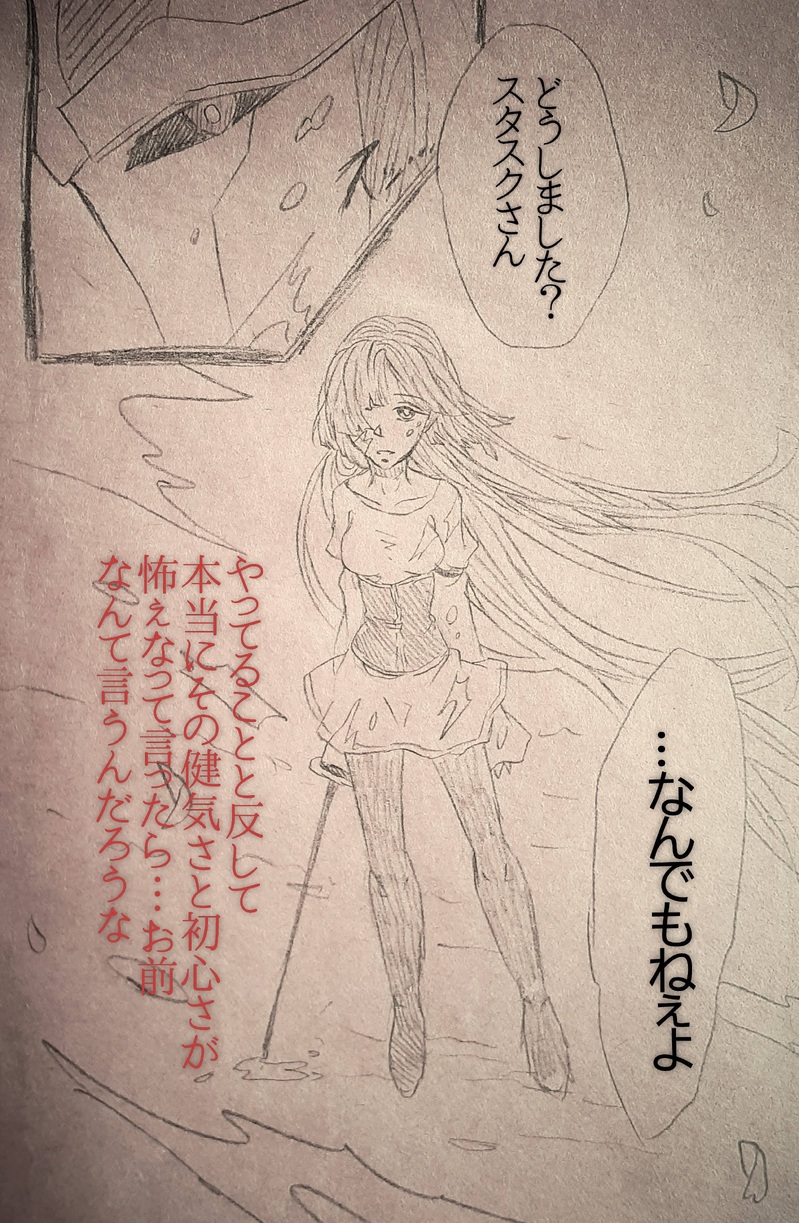 どうしました?
スタスクさん
…なんでもねぇよ
やってることと反して
本当にその健気さと初心さが
怖ぇなって言ったら…お前
なんて言うんだろうな